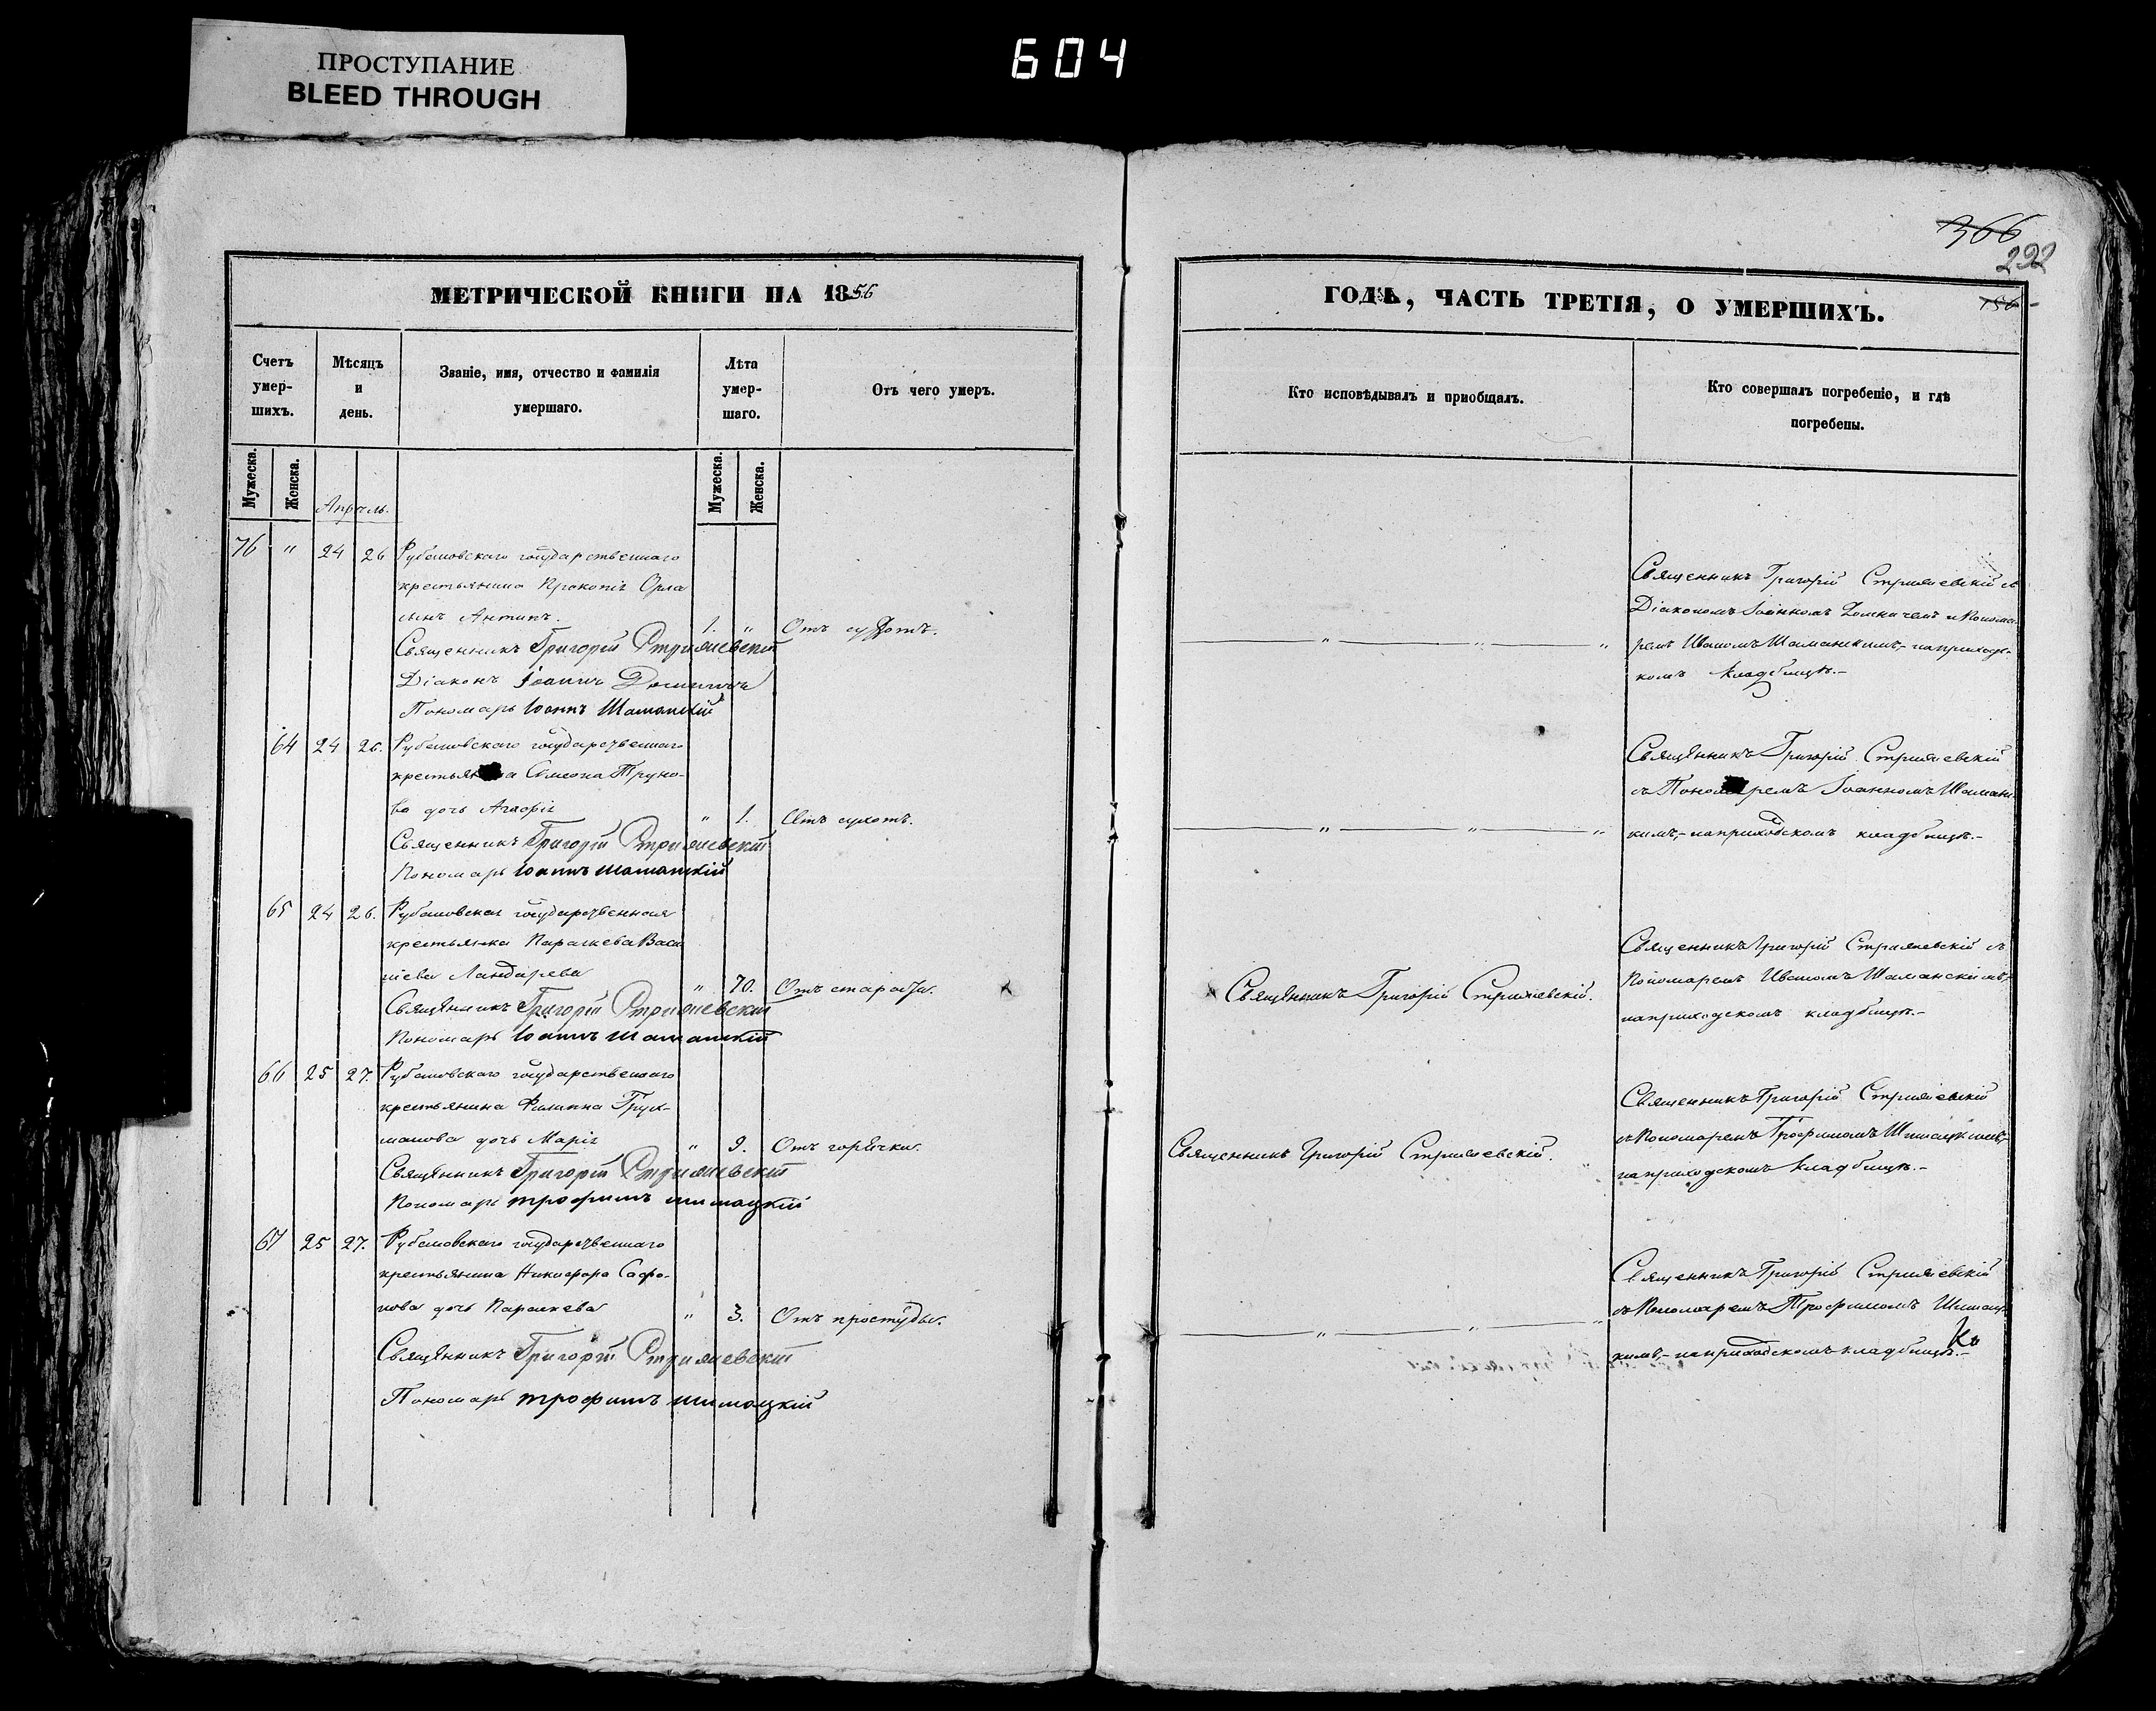 ПРОСТУПАНИЕ
BLEED THROUGH
604
366
292
МЕТРИЧЕСКОЙ КНИГИ НА 1856
Счетъ умер-шихъ.
Мѣсяцъ и день.
Званіе, имя, отчество и фамилія умершаго.
Лѣта умер-шаго.
Отъ чего умеръ.
Мужеска.
Женска.
Мужеска.
Женска.
Апрѣль.
76 " 24 26 Рубановскаго государственнаго
крестьянина Прокопія Орла
сынъ Антипъ. 1. " Отъ сухотъ.
Священникъ Григорій Стрижевскій
Діаконъ Іоаннъ Домничъ
Пономарь Іоаннъ Шаманскій
64 24 26. Рубановскаго государственнаго
крестьянина Симеона Труно-
ва дочь Агафія " 1. Отъ сухотъ.
Священникъ Григорій Стрижевскій
Пономарь Іоаннъ Шаманскій
65 24 26. Рубановская государственная
крестьянка Параскева Васи
лiева Ландарева " 70. Отъ старости.
Священникъ Григорій Стрижевскій
Пономарь Іоаннъ Шаманскій
66 25 27. Рубановскаго государственнаго
крестьянина Филиппа Трух-
манова дочь Марія " 9. Отъ горячки.
Священникъ Григорій Стрижевскій
Пономарь Трофимъ Шимацкій
67 25 27. Рубановскаго государственнаго
крестьянина Никифора Сафо-
нова дочь Параскева " 3. Отъ простуды.
Священникъ Григорій Стрижевскій
Пономарь Трофимъ Шимацкій
ГОДЪ, ЧАСТЬ ТРЕТІЯ, О УМЕРШИХЪ.
Кто исповѣдывалъ и пріобщалъ.
Кто совершалъ погребеніе, и гдѣ погребены.
Священникъ Григорій Стрижевскій съ
Діакономъ Іоанномъ Домничемъ и Понома
ремъ Иваномъ Шаманскимъ,- на приходс-
комъ кладбищѣ.-
Священникъ Григорій Стрижевскій
съ Пономаремъ Іоанномъ Шаманс
кимъ,- на приходскомъ кладбищѣ.-
Священникъ Григорій Стрижевскій.
Священникъ Григорій Стрижевскій съ
Пономаремъ Иваномъ Шаманскимъ,-
на приходскомъ кладбищѣ.-
Священникъ Григорій Стрижевскій.
Священникъ Григорій Стрижевскій
съ Пономаремъ Трофимомъ Шимацкимъ,-
на приходскомъ кладбищѣ.-
Священникъ Григорій Стрижевскій
съ Пономаремъ Трофимомъ Шимац-
кимъ,- на приходскомъ кладбищѣ.-